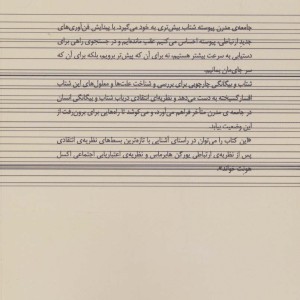 جامعه‌ی مدرن پیوسته شتاب بیش‌تری به خود می‌گیرد. با پیدایش فن‌آوری‌های
جدید ارتباطی، پیوسته احساس می‌کنیم عقب مانده‌ایم و در جستجوی راهی برای
دستیابی به سرعت بیشتر هستیم، نه برای آن که بیش‌تر برویم، بلکه برای آن که
سر جای‌مان بمانیم.
شتاب و بیگانگی چارچوبی برای بررسی و شناخت علت‌ها و معلول‌های این شتاب
افسارگسیخته به دست می‌دهد و نظریه‌ای انتقادی درباب شتاب و بیگانگی انسان
در جامعه‌ی مدرن متأخر فراهم می‌آورد، و می‌کوشد تا راه‌هایی برای برون‌رفت از
این وضعیت بیابد.
«این کتاب را می‌توان در راستای آشنایی با تازه‌ترین بسط‌های نظریه‌ی انتقادی
پس از نظریه‌ی ارتباطی یورگن هابرماس و نظریه‌ی اعتباریابی اجتماعی اکسل
هونت خواند».